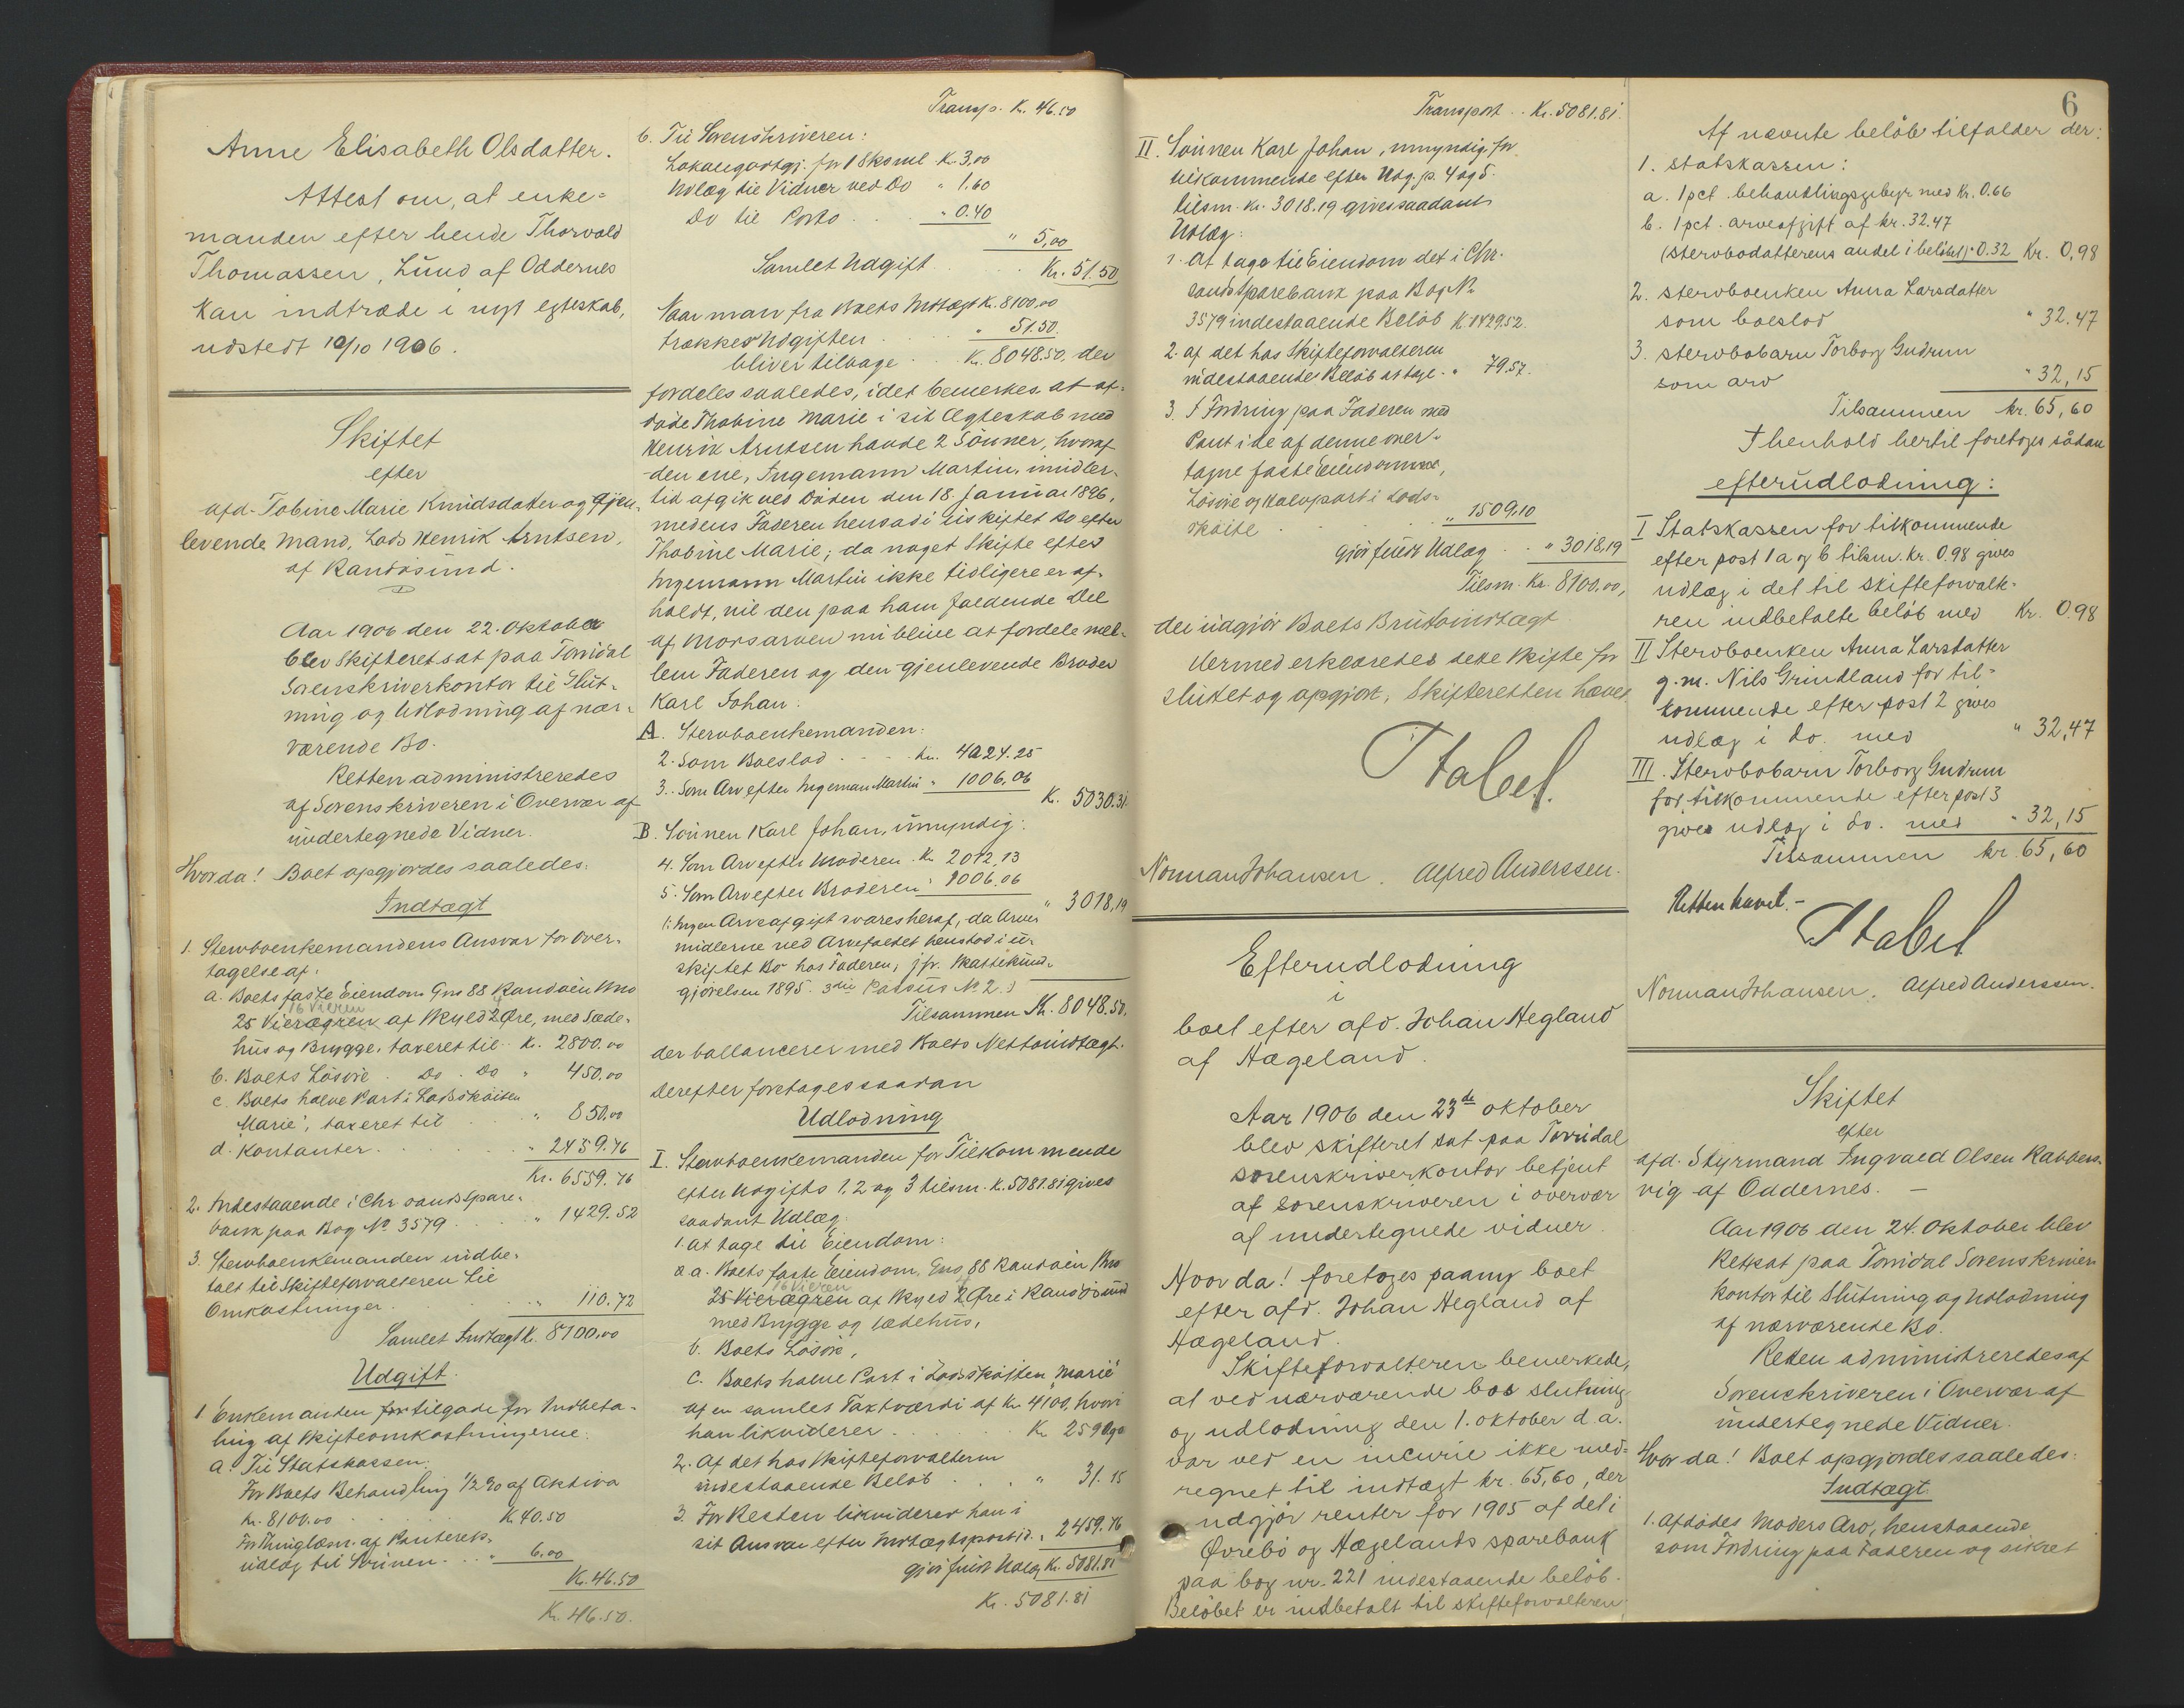 Anne Elisabeth Olsdatter.
Attest om, at enke-
manden efter hende Thorvald
Thomassen, Lund af Oddernes
kan indtræde i nyt egteskab,
udstedt 10/10 1906.
Skiftet
efter
afd. Tobine Marie Knudsdatter og gjen-
levende Mand, Lods Henrik Arntsen,
af Randøsund.
Aar 1906 den 22. Oktober
blev Skifteret sat paa Torridal
Sorenskriverkontor til Slut-
ning og Udlodning af nær-
værende Bo.
Retten administreredes
af Sorenskriveren i Overvær af
undertegnede Vidner.
Hvorda! Boet opgjordes saaledes:
Indtægt
1. Stervboenkemandens Ansvar for Over-
tagelse af:
a. Boets faste Eiendom Gno 88 Randøen Bno
16 Vieren
25 Vierægren af Skyld 2 Øre, med Sæde-
hus og Brygge, taxeret til K. 2800.00
b. Boets Løsøre. Do. Do " 450.00
c. Boets halve Part i Lodsskøiten
"Marie", taxeret til " 850.00
d. Kontanter " 2459.76
Kr. 6559.76
2. Indestaaende i Chr.sands Spare-
bank paa Bog No. 3579 " 1429.52
3. Stervboenkemanden indbe-
talt til Skifteforvalteren til
Omkostninger " 110.72
Samlet Indtægt K. 8100.00
Udgift.
1 Enkemanden for tilgode for Indbeta-
ling af Skifteomkostningerne:
a. Til Statskassen:
For Boets Behandling 1/2 % af Aktiva
Kr. 8100.00 K 40.50
For Thinglæsn. af Panterets-
udlæg til Sønnen " 6.00
Kr. 46.50
Kr. 46.50.
Transp. K. 46.50
b. Til Sorenskriveren:
Udlæg til Vidner ved Do " 1.60
Do til Porto " 0.40
" 5,00
Samlet Udgift Kr. 51.50
Naar man fra Boets Indtægt K. 8100.00
trækker Udgiften " 51.50.
bliver tilbage K. 8048.50, der
fordeles saaledes, idet bemerkes at af-
døde Thobine Marie i sit Ægteskab med
Henrik Arntsen havde 2 Sønner, hvoraf
den ene, Ingemann Martin, imidler-
tid afgik ved Døden den 18. Januar 1896,
medens Faderen hensad i uskiftet Bo efter
Thobine Marie; da noget Skifte efter
Ingemann Martin ikke tidligere er af-
holdt, vil den paa ham faldende Del
af Morsarven nu blive at fordele mel-
lem Faderen og den gjenlevende Broder
Karl Johan:
A. Stervboenkemanden:
2. Som Boeslod Kr. 4024.25
3. Som Arv efter Ingeman Martin " 1006.06
K. 5030.31
B. Sønnen Karl Johan, umyndig:
4. Som Arv efter Moderen K. 2012,13
5. Som Arv efter Broderen " 1006.06
" 3018,19
(: Ingen Arveafgift svares heraf, da Arve-
midlerne ved Arvefaldet henstod i u-
skiftet Bo hos Faderen, jfr.
gjørelsen 1895. 3die Passus No. 2.)
Tilsammen Kr. 8048.50,
der ballancerer med Boets Nettoindtægt.
Derefter foretages saadan
Udlodning
I. Stervboenkemanden for Tilkommende
efter Udgifts 1, 2 og 3 tilsm. K. 5081.81 gives
saadant Udlæg:
1. at tage til Eiendom:
a. Boets faste Eiendom, Gno 88 Randøen Bno
16 Vieren
25 Vierægren af Skyld 2 Øre i Randøsund
med Brygge og Sædehus,
b. Boets Løsøre,
c. Boets halve Part i Lodsskøiten "Marie"
af en samlet Taxtværdi af Kr. 4100, hvori
han likviderer Kr. 2590.90
2. Af det hos Skifteforvalteren
indestaaende Beløb " 31.15
3. For Resten likviderer han i
sit Ansvar efter Indtægtspost 1d. " 2459.76
gjør fuldt Udlæg Kr. 5081.81
Kr. 5081.81
Transport Kr. 5081.81.
II. Sønnen Karl Johan, umyndig for
tilkommende efter Udg. p. 4 og 5.
tilsm. Kr. 3018.19 gives saadant
Udlæg:
1. At tage til Eiendom det i Chr.
sands Sparebank paa Bog No
3579 indestaaende Beløb K 1429.52.
2. af det hos Skifteforvalteren
indestaaende Beløb at tage " 79.57.
3. I Fordring paa Faderen med
Pant i de af denne over-
tagne faste Eiendomme,
Løsøre og Halvpart i Lods-
skøite " 1509.10
gjør fuldt Udlæg " 3018,19
Tilsm. Kr. 8100.00,
der udgjør Boets Bruttoindtægt.
Dermed erklæredes dette Skifte for
sluttet og opgjort. Skifteretten hævet.
Stabel.
Norman Johansen. Alfred Anderssen.
Efterudlodning
i
boet efter afd. Johan Hegland
af Hægeland.
Aar 1906 den 23de oktober
blev skifteret sat paa Torridal
sorenskriverkontor betjent
af sorenskriveren i overvær
af undertegnede vidner.
Hvor da! foretoges paany boet
efter afd. Johan Hegland af
Hægeland.
Skifteforvalteren bemerkede,
at ved nærværende bos slutning
og udlodning den 1. oktober d.a.
var ved en incurie ikke med-
regnet til indtægt kr. 65,60, der
udgjør renter for 1905 af det i
Øvrebø og Hægelands sparebank
paa bog nr. 221 indestaaende beløb.
Beløbet er indbetalt til skifteforvalteren.
6
Af nævnte beløb tilfalder der:
1. statskassen:
a. 1 pct. behandlingsgebyr med Kr. 0.66
b. 1 pct. arveafgift af kr. 32.47
(stervbodatterens andel i beløbet) " 0.32 Kr. 0,98
2. stervboenken Anna Larsdatter
som boeslod " 32.47
3. stervbobarn Torborg Gudrun
som arv " 32,15
Tilsammen kr. 65,60
I henhold hertil foretoges sådan
efterudlodning:
I Statskassen for tilkommende
efter post 1 a og b tilsm. kr. 0.98 gives
udlæg i det til skifteforvalte-
ren indbetalte beløb med Kr. 0.98
II Stervboenken Anna Larsdatter
g.m. Nils Grindland for til-
kommende efter post 2 gives
udlæg i do. med " 32,47
III. Stervbobarn Torborg Gudrun
for tilkommende efter post 3
gives udlæg i do. med " 32,15
Tilsammen kr. 65,60
Retten hævet.-
Stabel
Norman Johansen. Alfred Anderssen.
Skiftet
efter
afd. Styrmand Ingvald Olsen Kabbers-
vig af Oddernes. -
Aar 1906 den 24. Oktober blev
Ret sat paa Torridal Sorenskriver-
kontor til Slutning og Udlodning
af nærværende Bo.
Retten administreredes af
Sorenskriveren i Overvær af
undertegnede Vidner.
Hvor da! Boet opgjordes saaledes:
Indtægt
1. Afdødes Moders Arv, henstaaende
som Fordring paa Faderen og sikret